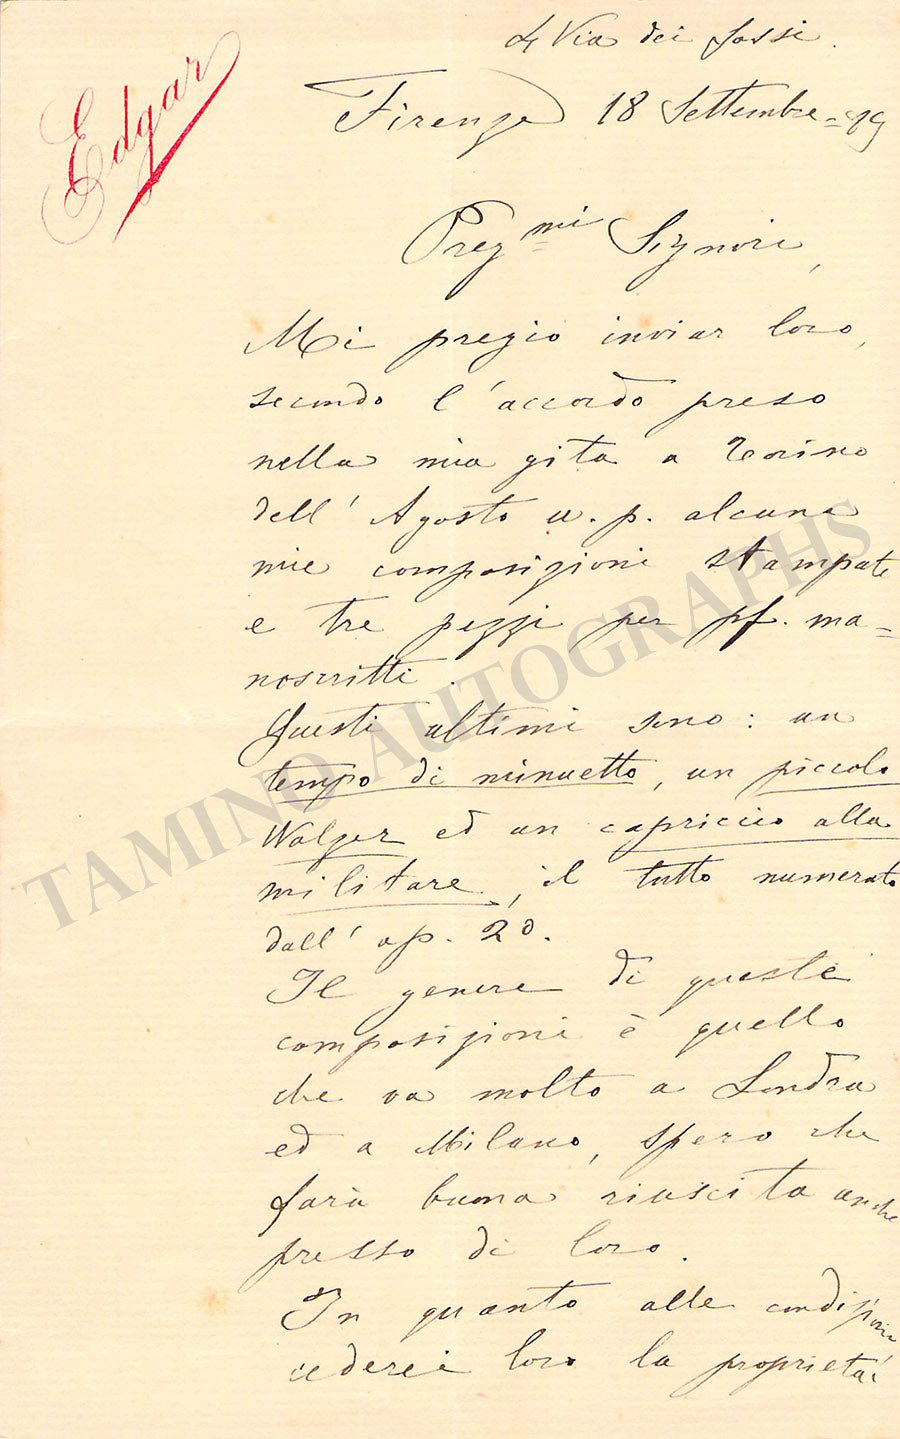 Edgar
4 Via dei Fossi.
Firenze 18 Settembre = 89
Preg mi Signori,
Mi pregio inviar loro,
secondo l'accordo preso
nella mia gita a Torino
dell' Agosto u. p. alcune
mie composizioni stampate
e tre pezzi per pf. ma=
noscritti.
Questi ultimi sono: un
tempo di minuetto, un piccolo
Walzer ed un capriccio alla
militare, il tutto numerato
dall' op. 20.
Il genere di queste
composizioni è quello
che va molto a Londra
ed a Milano, spero che
farà buona riuscita anche
presso di loro.
In quanto alle condizioni
cederei loro la proprietà
TAMINO AUTOGRAPHS